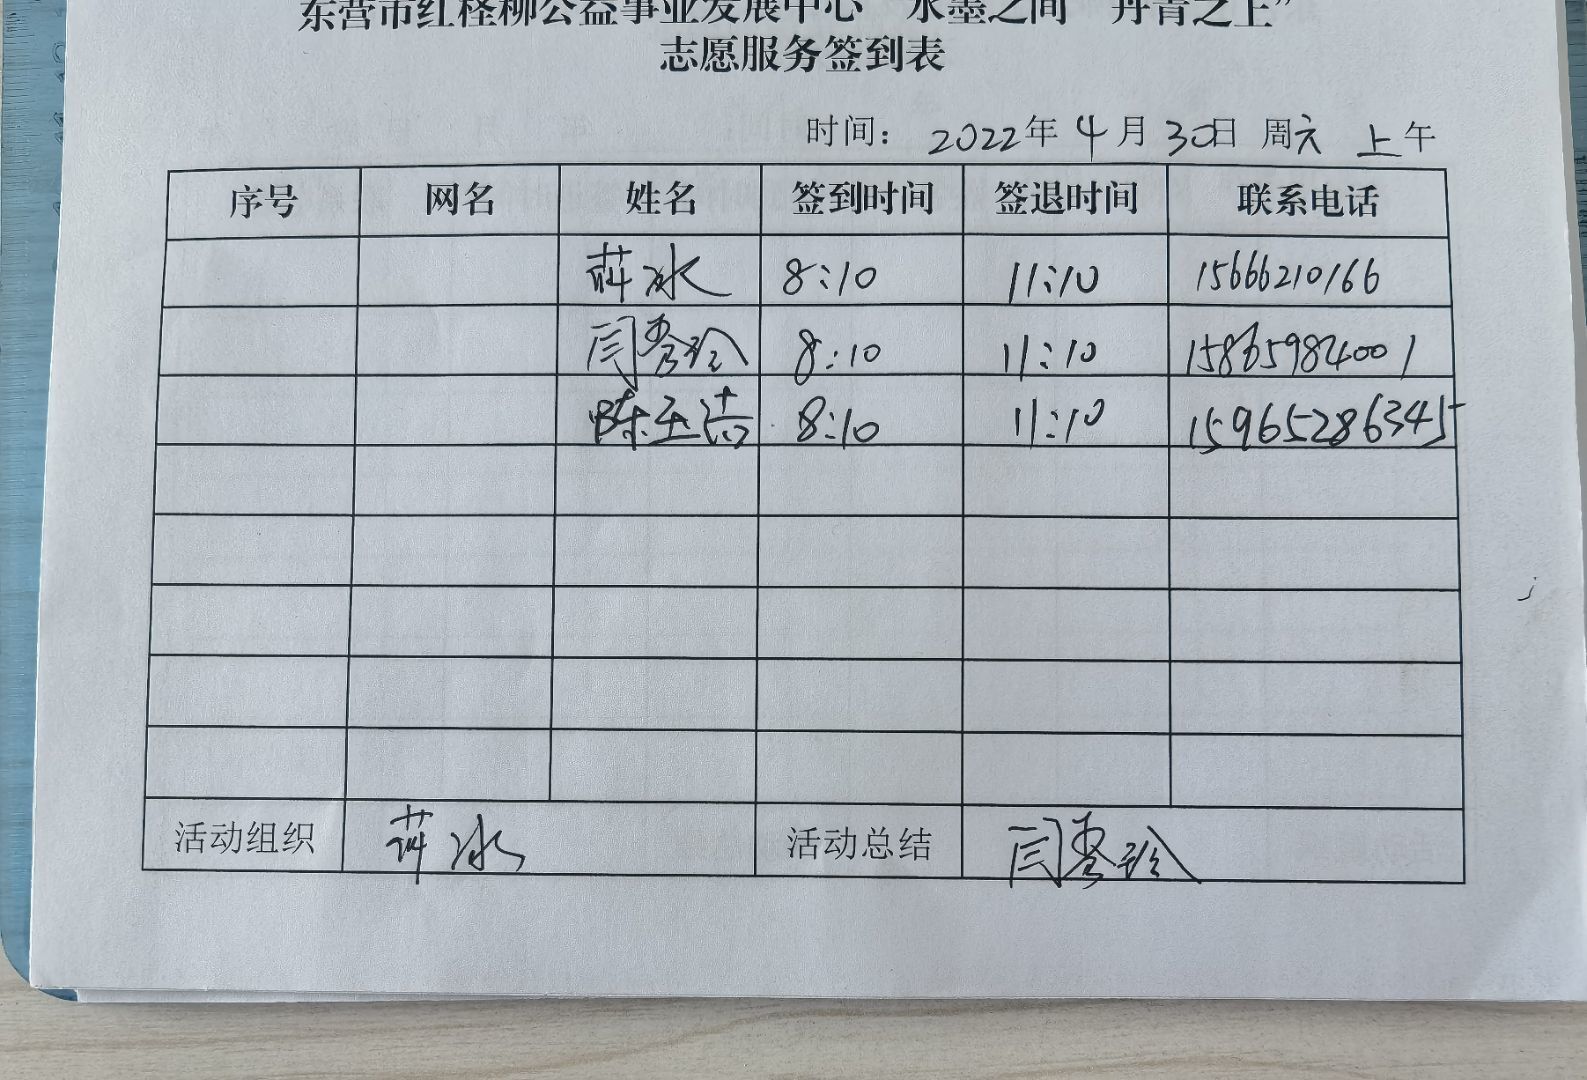 东营市红柽柳公益事业发展中心“水墨之间 丹青之上”
志愿服务签到表
时间： 2022年 4月 30日 周六 上午
序号 网名 姓名 签到时间 签退时间 联系电话
冰 8:10 11:10 15666210166
闫秀玲 8:10 11:10 15865984001
陈玉洁 8:10 11:10 15965286345
活动组织 冰 活动总结 闫秀玲